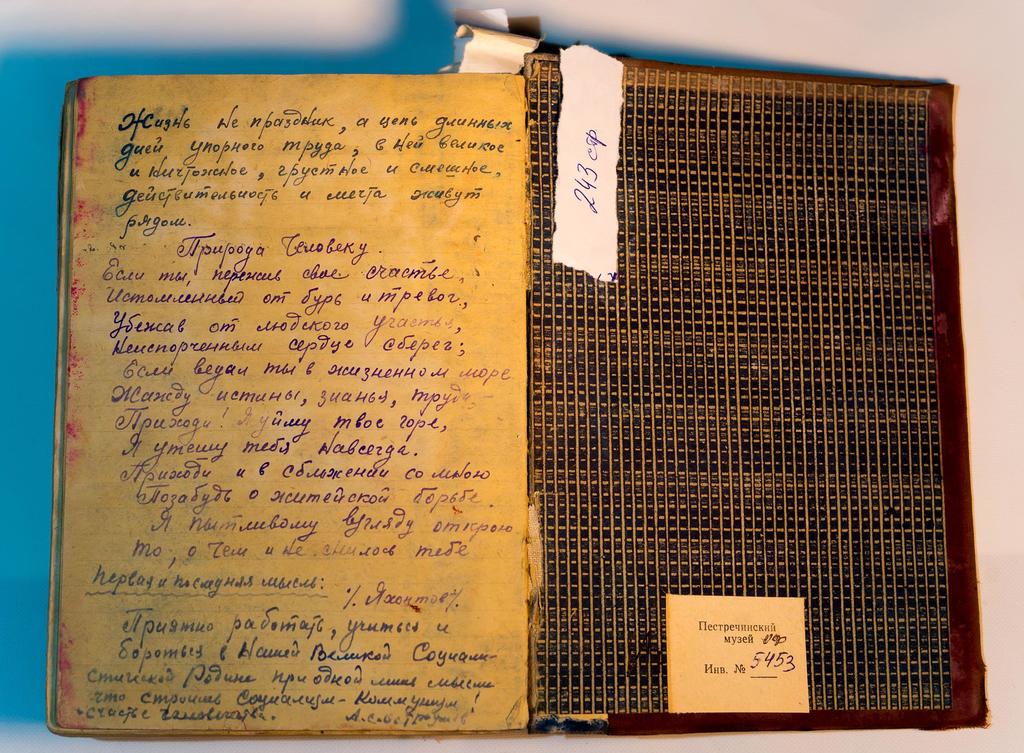 Жизнь не праздник, а цепь длинных
дней упорного труда, в ней великое
и ничтожное, грустное и смешное,
действительность и мечта живут
рядом.
Природа Человеку.
Если ты, пережив свое счастье,
Истомленный от бурь и тревог,
Убежав от людского участья,
Неиспорченным сердце сберег;
Если ведал ты в жизненном море
Жажду истины, знанья, труда,-
Приходи! Я уйму твое горе,
Я утешу тебя навсегда.
Приходи и в сближении со мною
Позабудь о житейской борьбе.
Я пытливому взгляду открою
То, о чем и не снилось тебе
/. Яхонтов/.
Первая и последняя мысль:
Приятно работать, учиться и
бороться в Нашей Великой Социали-
стической Родине при одной лишь мысли
что строишь Социализм-Коммунизм
счастье человечества.
243 сф
Пестречинский
музей
Инв. № 5453